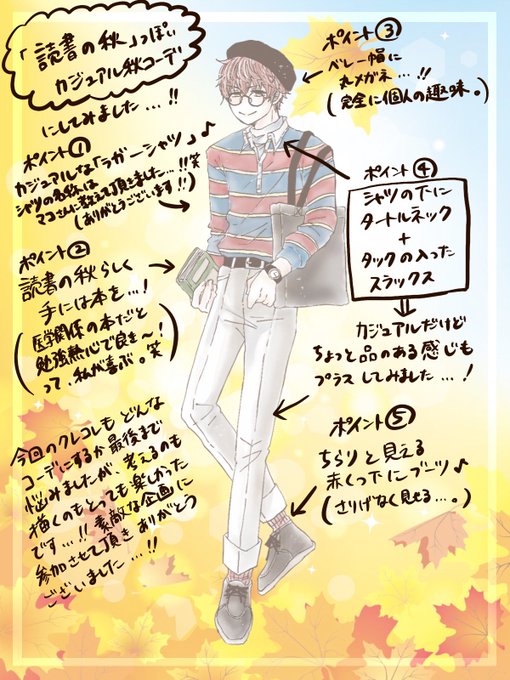 「読書の秋」っぽい
カジュアル秋コーデ
にしてみました…!!
ポイント①
カジュアルな「ラガーシャツ」♪
シャツの名称は
マコさんに教えて頂きました…!!笑
(ありがとうございます!!)
ポイント②
読書の秋らしく
手には本を…!
(医学関係の本だと
勉強熱心で良き〜!
って、私が喜ぶ。笑)
今回のクレコレも どんな
コーデにするか最後まで
悩みましたが、考えるのも
描くのもとっても楽しかった
です…!! 素敵な企画に
参加させて頂き ありがとう
ございました…!!
ポイント③
ベレー帽に
丸メガネ…!!
(完全に個人の趣味。)
ポイント④
シャツの下に
タートルネック
+
タックの入った
スラックス
カジュアルだけど
ちょっと品のある感じも
プラスしてみました…!
ポイント⑤
ちらりと見える
赤くつ下にブーツ♪
(さりげなく見せる…。)